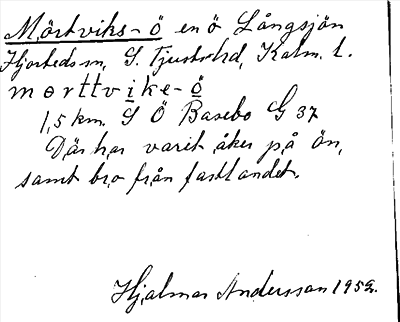 Mörtviks-ö en ö Långsjön
Hjorteds sn, S. Tjusts hd, Kalm. l.
mørttvike-ö
1,5 km. S Ö Basebo G 37
Där har varit åker på ön,
samt bro från fastlandet.
Hjalmar Andersson 1952.